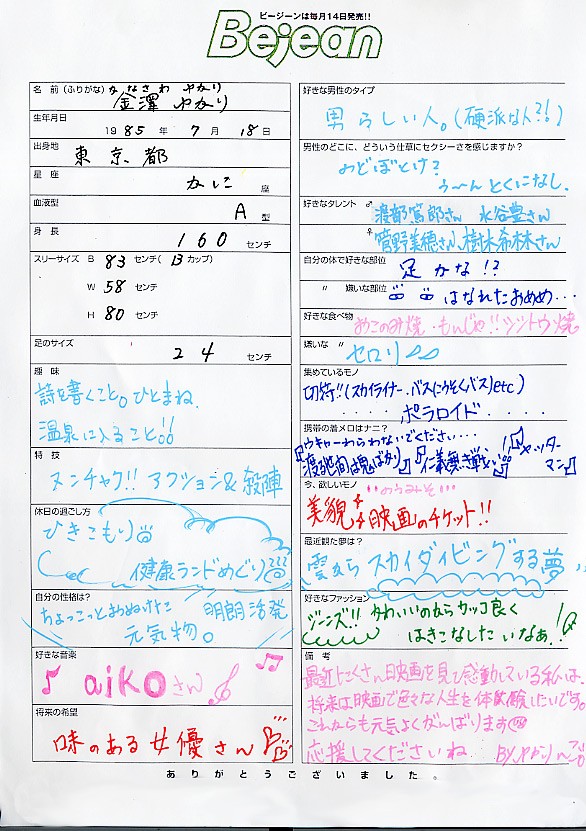 ビージーンは毎月14日発売!!
Bejean
名 前 (ふりがな) かなざわ ゆかり
金澤 ゆかり
生年月日
1985年 7月 18日
出身地
東京都
星 座
かに 座
血液型
A 型
身 長
160 センチ
スリーサイズ B 83 センチ( Bカップ)
W 58 センチ
H 80 センチ
足のサイズ
24 センチ
趣 味
詩を書くこと。ひとまね。
温泉に入ること!!
特 技
ヌンチャク!! アクション&殺陣
休日の過ごし方
ひきこもり
健康ランドめぐり
自分の性格は?
ちょっこっとまぬけた 明朗活発
元気物。
好きな音楽
aikoさん
将来の希望
味のある女優さん
好きな男性のタイプ
男らしい人。(硬派な人?!)
男性のどこに、どういう仕草にセクシーさを感じますか?
のどぼとけ?
う〜んとくになし.
好きなタレント ♂
渡部篤郎さん 水谷豊さん
♀
菅野美穂さん、樹木希林さん
自分の体で好きな部位
足かな!?
〃 嫌いな部位
はなれたおめめ…
好きな食べ物
おこのみ焼・もんじゃ!!ジントウ焼
嫌いな 〃
セロリ
集めているモノ
切符!!(スカイライナー.バスにうそくバス)etc)
ポラロイド
携帯の着メロはナニ?
ウキャーわらわないでください…
渡る世間は鬼ばかり 仁義無き戦い ヤッターマン
今、欲しいモノ
…のうみそ…
美貌 映画のチケット!!
最近観た夢は?
雲からスカイダイビングする夢
好きなファッション
ジーンズ!! かわいいのからカッコ良く
はきこなしたいなぁ!
備 考
最近たくさん映画を見て感動している私は、
将来は映画で色々な人生を体験したいです。
これからも元気よくがんばります
応援してくださいね BY.ゆかり
ありがとうございました。